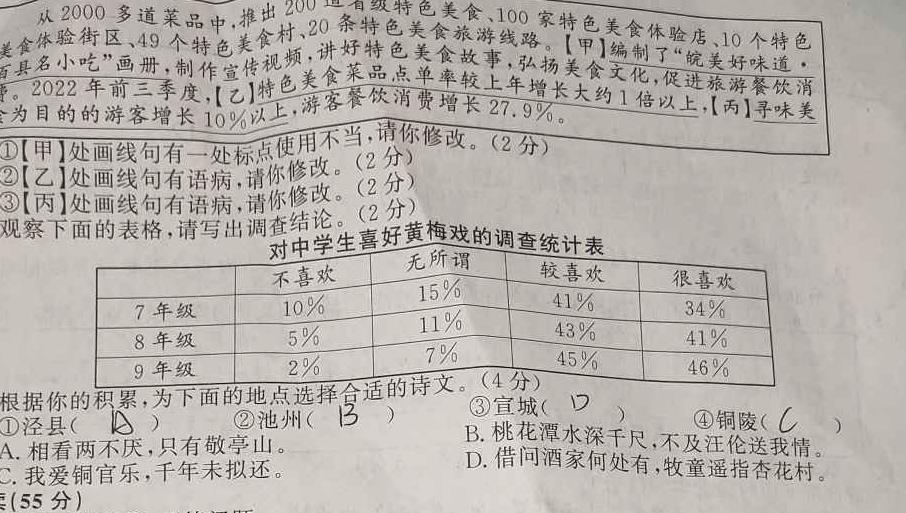 从 2000 多道菜品中,推出 200 道省级特色美食、100 家特色美食体验店、10 个特色
美食体验街区、49 个特色美食村、20 条特色美食旅游线路。【甲】编制了“皖美好味道·
百县名小吃”画册,制作宣传视频,讲好特色美食故事,弘扬美食文化,促进旅游餐饮消
费。2022 年前三季度,【乙】特色美食菜品点单率较上年增长大约 1 倍以上,【丙】寻味美
食为目的的游客增长 10%以上,游客餐饮消费增长 27.9%。
①【甲】处画线句有一处标点使用不当,请你修改。(2 分)
②【乙】处画线句有语病,请你修改。(2 分)
③【丙】处画线句有语病,请你修改。(2 分)
观察下面的表格,请写出调查结论。(2 分)
对中学生喜好黄梅戏的调查统计表
不喜欢 无所谓 较喜欢 很喜欢
7 年级 10% 15% 41% 34%
8 年级 5% 11% 43% 41%
9 年级 2% 7% 45% 46%
根据你的积累,为下面的地点选择合适的诗文。(4 分)
①泾县( A ) ②池州( B ) ③宣城( D ) ④铜陵( C )
A. 相看两不厌,只有敬亭山。 B. 桃花潭水深千尺,不及汪伦送我情。
C. 我爱铜官乐,千年未拟还。 D. 借问酒家何处有,牧童遥指杏花村。
(55 分)